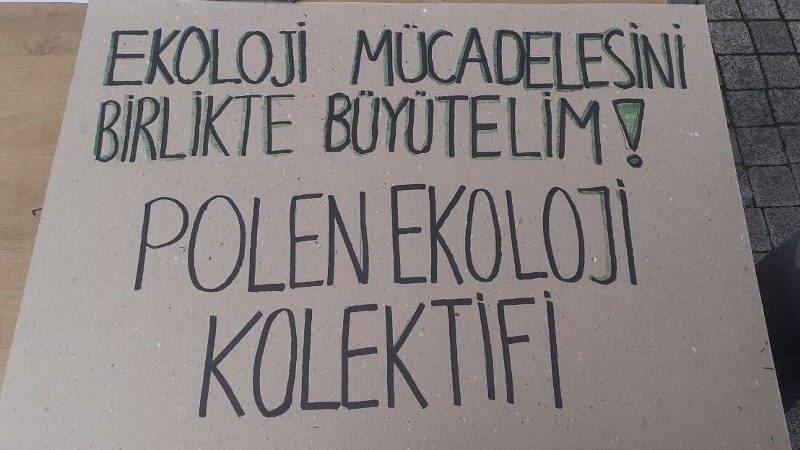 EKOLOJİ MÜCADELESİNİ
BİRLİKTE BÜYÜTELİM!
POLEN EKOLOJİ
KOLEKTİFİ